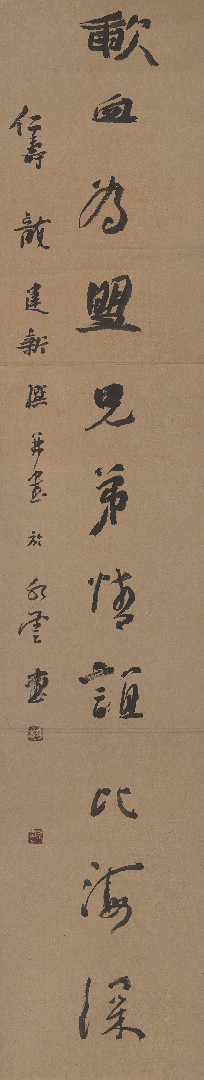 歃血為盟兄弟情誼比海深
仁壽龍建新撰并書於水雲齋